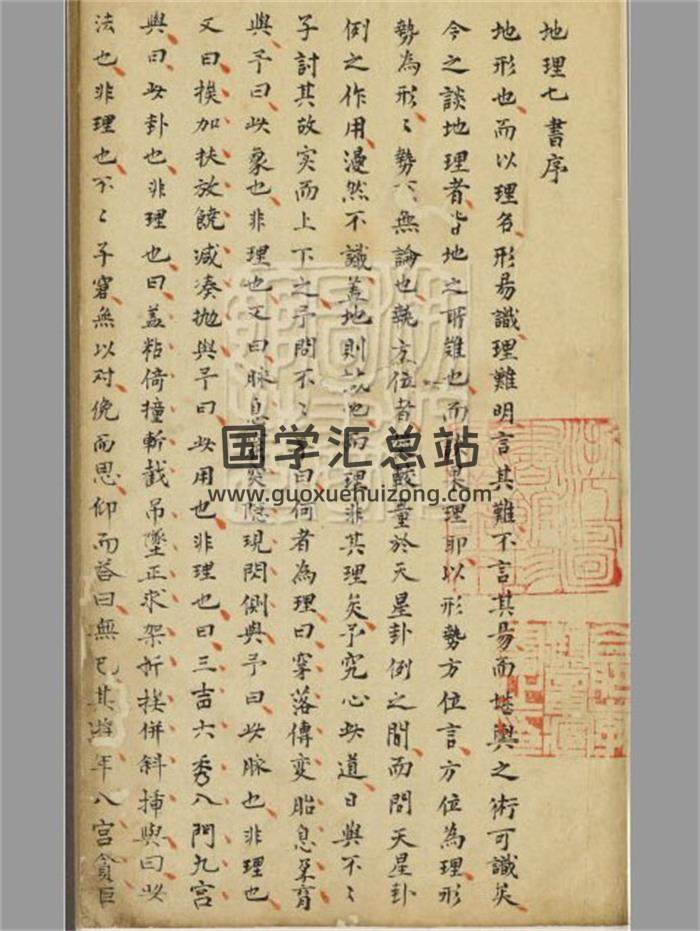 地理七書序
地形也而以理名形易識理難明言其難不言其易而堪輿之術可識矣
今之談地理者皆地之所難也而果理耶以形勢方位言方位為理形
勢為形〻勢不無論也執方位者較量於天星卦例之間而問天星卦
例之作用漫然不識蓋地則地而理非其理矣予究心此道日與不〻
子討其故实而上下之予問不〻子曰何者為理曰穿落傳变胎息孕育
與予曰此象也非理也又曰脉息隐現閃側與予曰此脉也非理也
又曰挨加扶放饒减凑抛與予曰此用也非理也曰三吉六秀八門九宮
與曰此卦也非理也曰盖粘倚撞斬截吊墜正求架折挨併斜插與曰此
法也非理也不〻子窘無以对俛而思仰而荅曰無已其遊年八宮貪巨
国学汇总站
www.guoxuehuizong.com